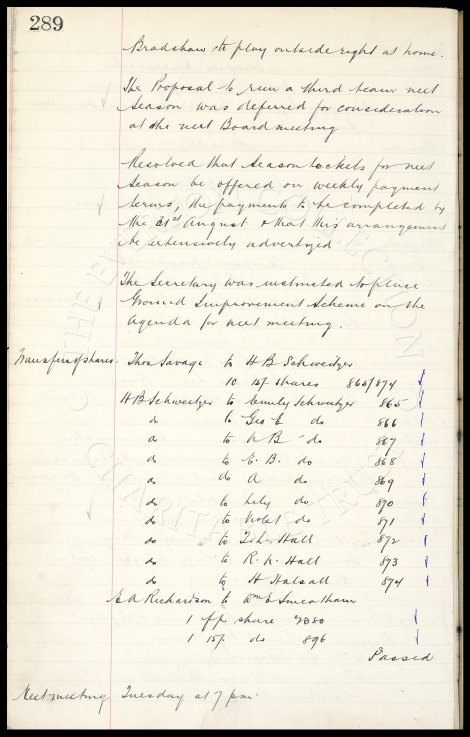 289
Bradshaw to play outside right at home.
The Proposal to run a third team next
Season was deferred for consideration
at the next Board meeting
Resolved that Season tickets for next
Season be offered on weekly payment
terms, the payments to be completed by
the 31st August & that this arrangement
be extensively advertized
The Secretary was instructed to place
Ground Improvement Scheme on the
Agenda for next meeting.
Transfer of shares. Thos Savage to H B Schweitzer
10 15/- shares 865/874
H B Schweitzer to Emily Schweitzer 865
do to Geo E do 866
do to B do 867
do to E. B. do 868
do do A do 869
do to Lily do 870
do to Violet do 871
do to Hall 872
do to R. Hall 873
do to H Halsall 874
E A Richardson to Wm E Smeatham
1 f/p share 2380
1 15/- do 896
Passed
Next meeting Tuesday at 7 pm.
THE EVERTON COLLECTION
CHARITABLE TRUST